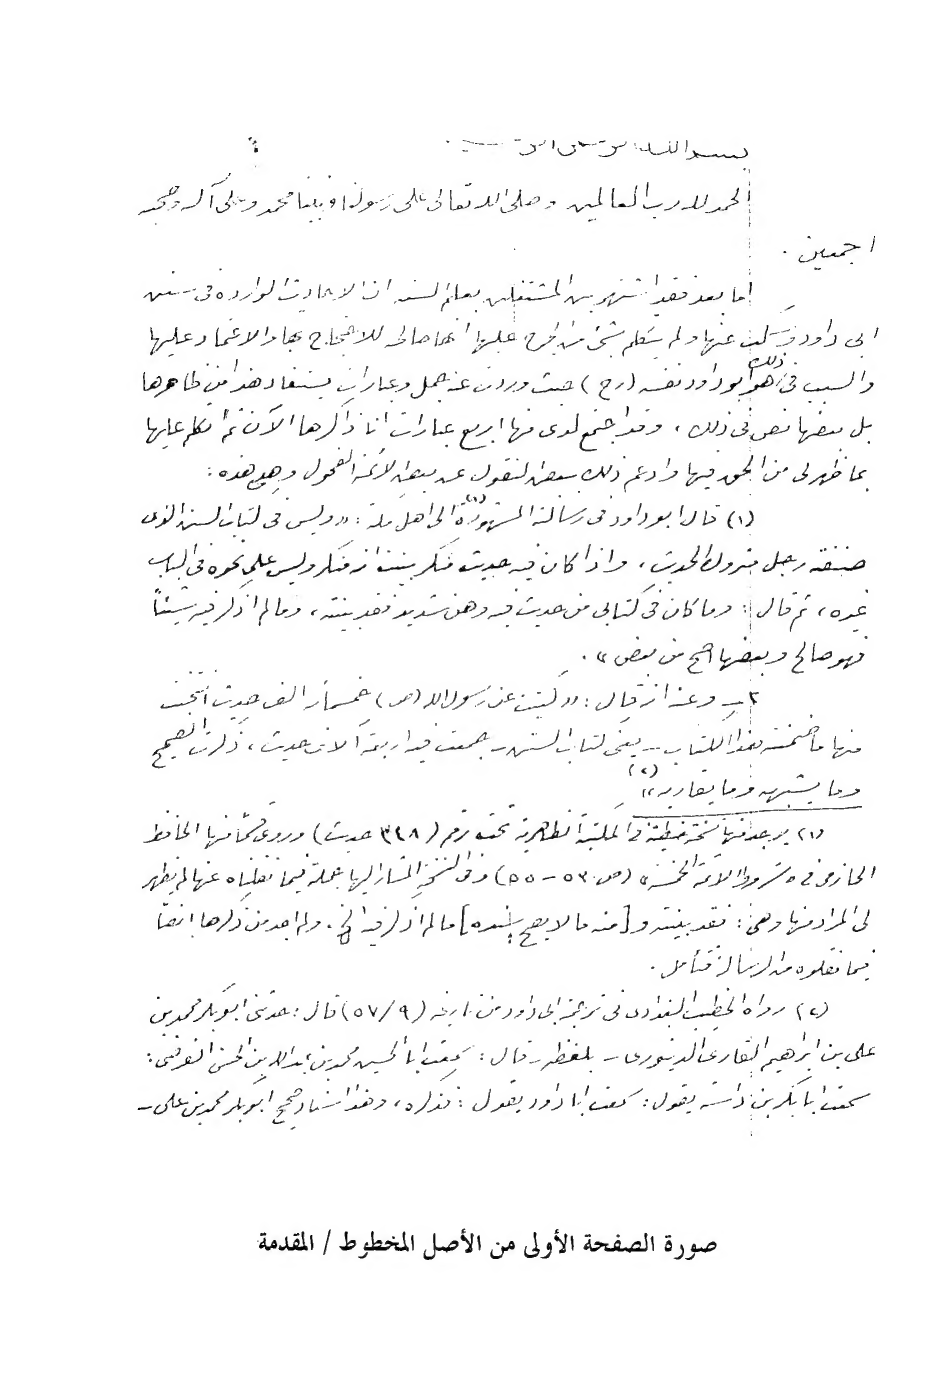 بسم الله الرحمن الرحيم
الحمد لله رب العالمين وصلى الله تعالى على رسولنا ونبينا محمد وعلى آله وصحبه
اجمعين .
اما بعد فقد اشتهر بين المشتغلين بعلم السنه ان الاحاديث الوارده فى سنن
ابى داود وسكت عنها ولم يتكلم بشئ من الجرح عليها انها صالحه للاحتجاج بها والاعتماد عليها
والسبب فى ذلك هو ابو داود نفسه (رح) حيث وردت عنه جمل وعبارات يستفاد هذا من ظاهرها
بل بعضها نص فى ذلك ، وقد اجتمع لدى منها اربع عبارات انا ذاكرها الآن ثم اتكلم عليها
بما ظهر لى من الحق فيها وادعم ذلك ببعض النقول عن بعض الائمة الفحول وهى هذه :
(١) قال ابو داود فى رسالته المشهورة (١) الى اهل مكة : «وليس فى كتاب السنن الذى
صنفته رجل متروك الحديث ، واذا كان فيه حديث منكر بينت انه منكر وليس على نحوه فى الباب
غيره ، ثم قال : وما كان فى كتابى من حديث فيه وهن شديد فقد بينته ، وما لم اذكر فيه شيئاً
فهو صالح وبعضها اصح من بعض» .
٢ – وعنه انه قال : «كتبت عن رسول الله (ص) خمسمائة الف حديث انتخبت
منها ما ضمنته هذا الكتاب – يعنى كتاب السنن – جمعت فيه اربعة آلاف حديث ، ذكرت الصحيح
وما يشبهه وما يقاربه» (٢)
(١) يوجد منها نسخة خطية فى المكتبة الظاهرية تحت رقم (٣٤٨ حديث) وروى قسماً منها الحافظ
الحازمى فى «شروط الائمة الخمسة» (ص ٥٣ – ٥٥) وفى النسخة المشار اليها جملة فيما نقلناه عنها لم يظهر
لى المراد منها وهى : فقد بينته و [منه ما لا يصح سنده] ما لم اذكر فيه الخ . ولم اجد من ذكرها ايضاً
فيما نقلوه من الرسالة فتأمل .
(٢) رواه الخطيب البغدادى فى ترجمة ابى داود من تاريخه (٥٧/٩) قال : حدثنى ابو بكر محمد بن
على بن ابراهيم القارئ الدينورى – بلفظه – قال : سمعت ابا الحسين محمد بن عبدالله بن الحسن الفرضى :
سمعت ابا بكر بن داسه يقول : سمعت ابا داود يقول : فذكره ، وهذا اسناد صحيح ابو بكر محمد بن على –
صورة الصفحة الأولى من الأصل المخطوط / المقدمة